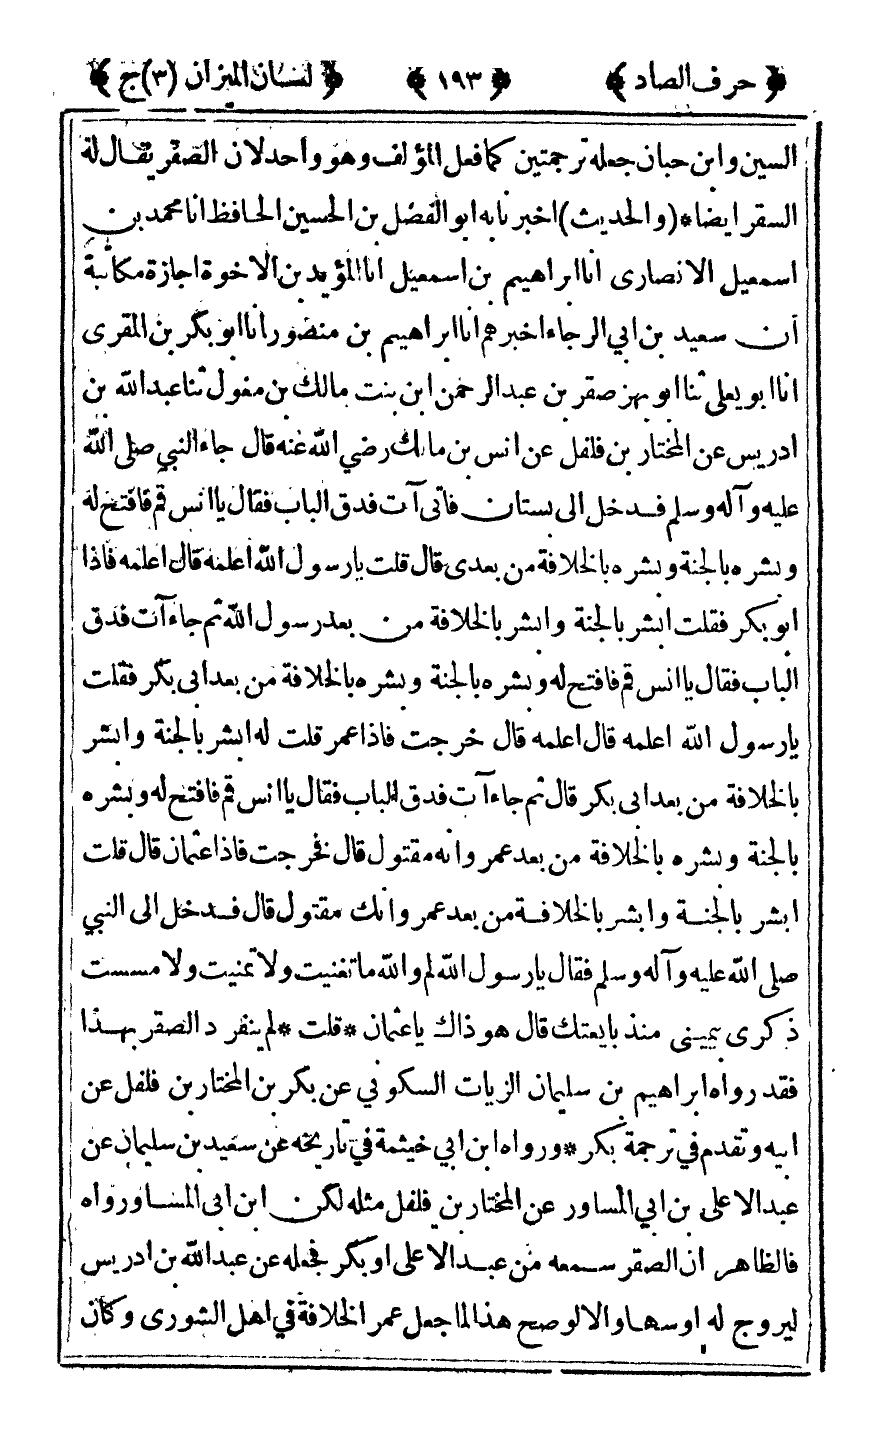 ﴿ حرف الصاد ﴾ ﴿ ١٩٣ ﴾ ﴿ لسان الميزان (٣) ج ﴾
السين وابن حبان جعله ترجمتين كما فعل المؤلف وهو واحد لان الصقر يقال له
السقر ايضا * (والحديث) اخبرنا به ابو الفضل بن الحسين الحافظ انا محمد بن
اسمعيل الانصارى انا ابراهيم بن اسمعيل انا المؤيد بن الاخوة اجازة مكاتبة
ان سعيد بن ابي الرجاء اخبرهم انا ابراهيم بن منصور انا ابو بكر بن المقرى
انا ابو يعلى ثنا ابو بهز صقر بن عبد الرحمن ابن بنت مالك بن مغول ثنا عبد الله بن
ادريس عن المختار بن فلفل عن انس بن مالك رضي الله عنه قال جاء النبي صلى الله
عليه وآله وسلم فدخل الى بستان فاتى آت فدق الباب فقال يا انس قم فافتح له
وبشره بالجنة وبشره بالخلافة من بعدى قال قلت يا رسول الله اعلمه قال اعلمه فاذا
ابو بكر فقلت ابشر بالجنة وابشر بالخلافة من بعد رسول الله ثم جاء آت فدق
الباب فقال يا انس قم فافتح له وبشره بالجنة وبشره بالخلافة من بعد ابى بكر فقلت
يا رسول الله اعلمه قال اعلمه قال خرجت فاذا عمر قلت له ابشر بالجنة وابشر
بالخلافة من بعد ابى بكر قال ثم جاء آت فدق الباب فقال يا انس قم فافتح له وبشره
بالجنة وبشره بالخلافة من بعد عمر وانه مقتول قال فخرجت فاذا عثمان قال قلت
ابشر بالجنة وابشر بالخلافة من بعد عمر وانك مقتول قال فدخل الى النبي
صلى الله عليه وآله وسلم فقال يا رسول الله لم والله ما تغنيت ولا تمنيت ولا مسست
ذكرى بيميني منذ بايعتك قال هو ذاك يا عثمان * قلت * لم ينفرد الصقر بهذا
فقد رواه ابراهيم بن سليمان الزيات السكوني عن بكر بن المختار بن فلفل عن
ابيه وتقدم في ترجمة بكر * ورواه ابن ابي خيثمة في تاريخه عن سعيد بن سليمان عن
عبد الاعلى بن ابي المساور عن المختار بن فلفل مثله لكن ابن ابى المساور واه
فالظاهر ان الصقر سمعه من عبد الاعلى او بكر فجعله عن عبد الله بن ادريس
ليروج له او سها والا لو صح هذا لما جعل عمر الخلافة في اهل الشورى وكان